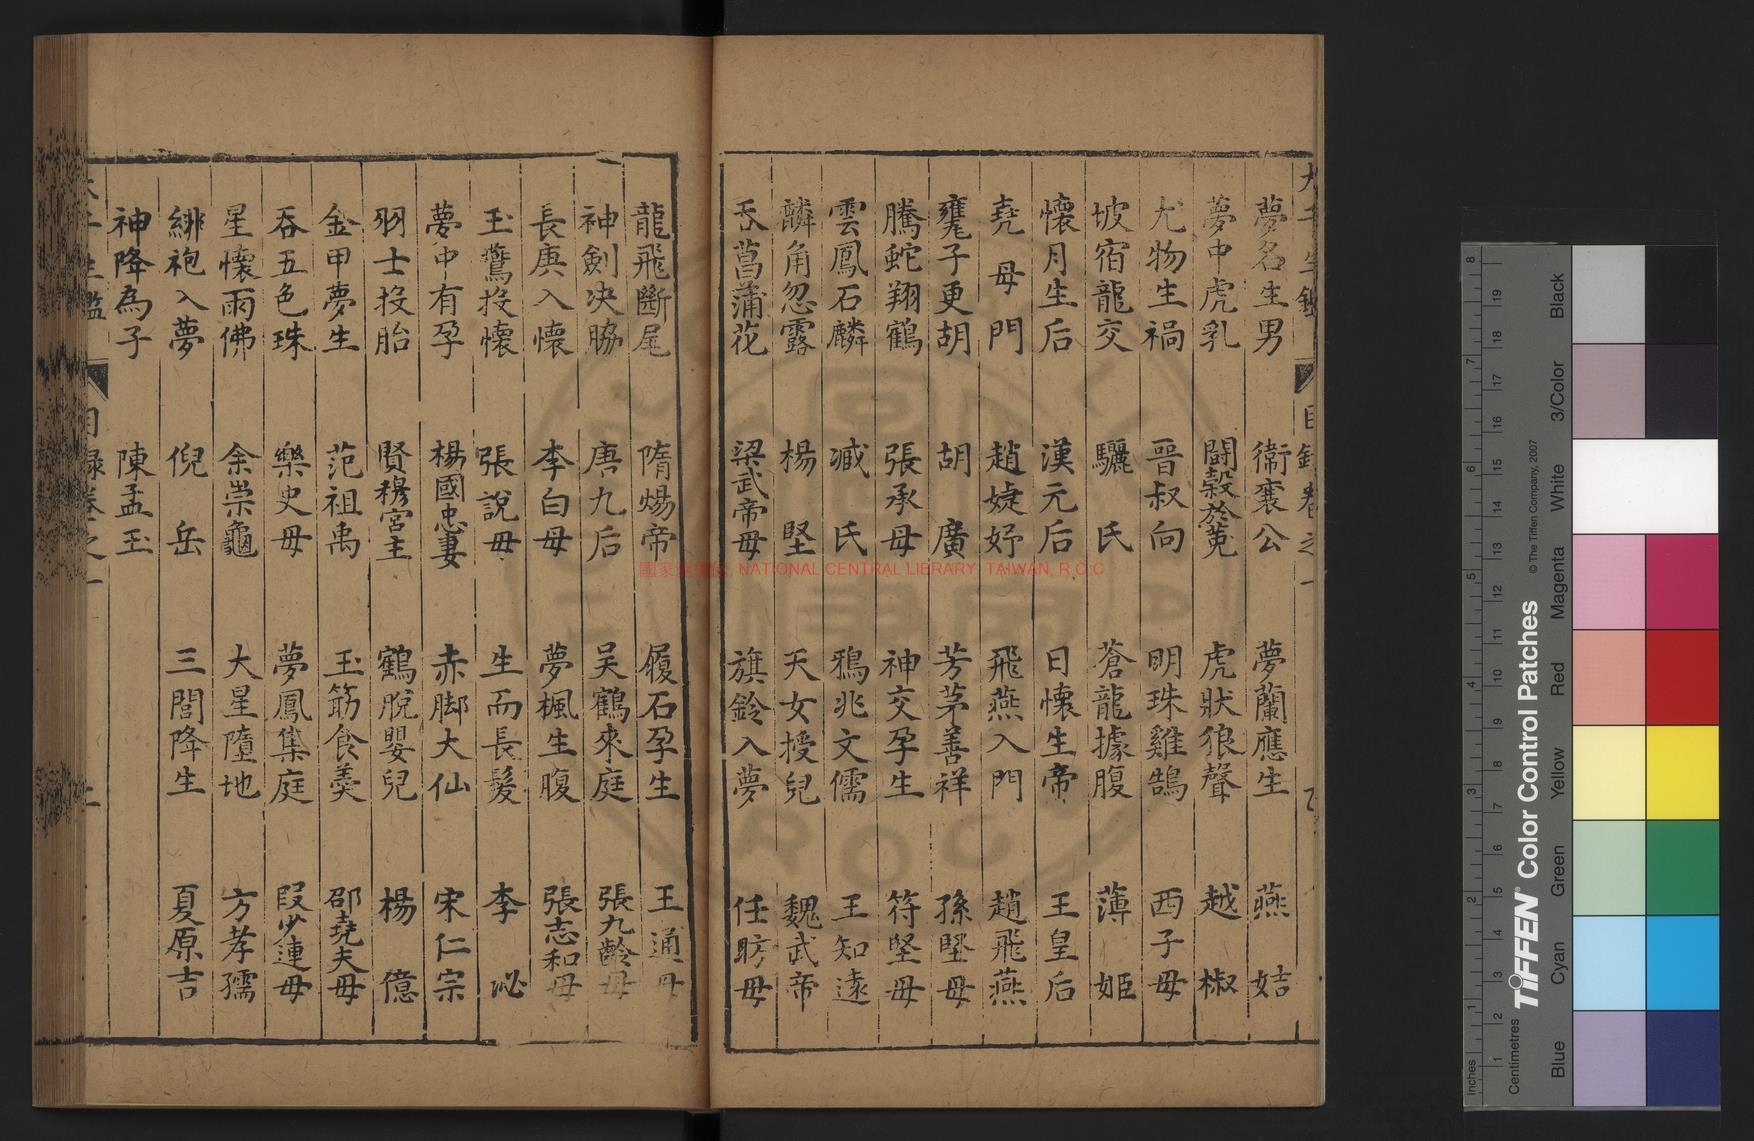 夢名生男 衞襄公 夢蘭應生 燕姞
夢中虎乳 鬪穀於菟 虎狀狼聲 越椒
尤物生禍 晉叔向 明珠雞鵠 西子母
坡宿龍交 驪氏 蒼龍據腹 薄姬
懷月生后 漢元后 日懷生帝 王皇后
堯母門 趙婕妤 飛燕入門 趙飛燕
甕子更胡 胡廣 芳茅善祥 孫堅母
騰蛇翔鶴 張承母 神交孕生 符堅母
雲鳳石麟 臧氏 鴉兆文儒 王知遠
麟角忽露 楊堅 天女授兒 魏武帝
吞菖蒲花 梁武帝母 旗鈴入夢 任昉母
龍飛斷尾 隋煬帝 履石孕生 王通母
神劍决脇 唐九后 吴鶴來庭 張九齡母
長庚入懷 李白母 夢楓生腹 張志和母
玉鷰投懷 張說母 生而長髮 李泌
夢中有孕 楊國忠妻 赤脚大仙 宋仁宗
羽士投胎 賢穆宮主 鶴脫嬰兒 楊億
金甲夢生 范祖禹 玉筯食羮 邵堯夫母
吞五色珠 樂史母 夢鳳集庭 段少連母
星懷雨佛 余崇龜 大星墮地 方孝孺
緋袍入夢 倪岳 三閭降生 夏原吉
神降為子 陳孟玉
目錄卷之一
國家圖書館, NATIONAL CENTRAL LIBRARY, TAIWAN, R.O.C
TIFFEN® Color Control Patches
© The Tiffen Company, 2007
Centimetres
Inches
Blue
Cyan
Green
Yellow
Red
Magenta
White
3/Color
Black